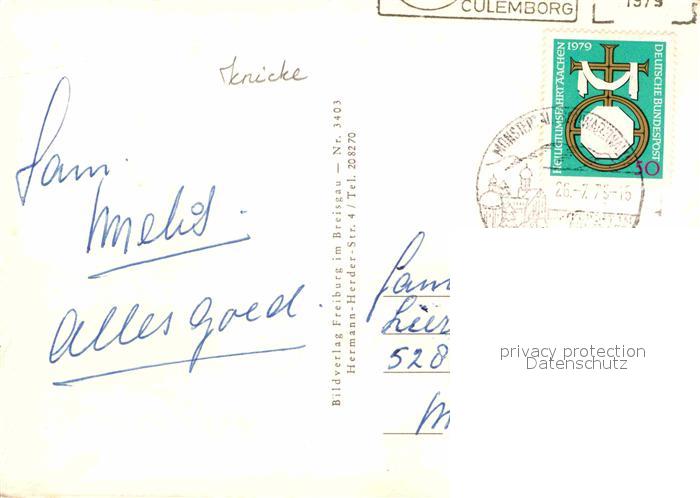 CULEMBORG
1979
Knicke
HEILIGTUMSFAHRT AACHEN 1979
DEUTSCHE BUNDESPOST
50
26.-7.79-15
Fam.
Alles goed.
Bildverlag Freiburg im Breisgau — Nr. 3403
Hermann-Herder-Str. 4 / Tel. 208270
Fam
528
M
privacy protection
Datenschutz